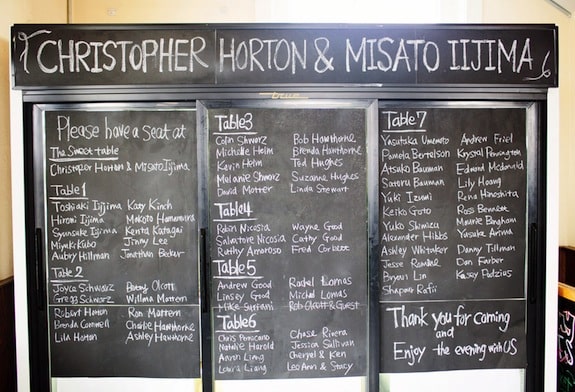 CHRISTOPHER HORTON & MISATO IIJIMA
Please have a seat at
The Sweet table
Christopher Horton & Misato Iijima
Table 1
Toshiaki Iijima Katy Kinch
Hiromi Iijima Makoto Hamamura
Syunsuke Iijima Kenta Katagai
Miyaki Kubo Jinny Lee
Aubry Hillman Jonathan Becker
Table 2
Joyca Schwarz Betsy Olcott
Gregg Schwarz Willma Mattern
Robert Horton Ron Mattern
Brenda Cornwell Charlie Hawthorne
Lila Horton Ashley Hawthorne
Table 3
Colin Shwarz Rob Hawthorne
Michelle Heim Brenda Hawthorne
Kevin Heim Ted Hughes
Melanie Shwarz Suzanne Hughes
David Motter Linda Stewart
Table 4
Robin Nicosia Wayne Good
Salvatore Nicosia Cathy Good
Ruthy Amoroso Fred Corbett
Table 5
Andrew Good Rachel Lomas
Linsey Good Michal Lomas
Mike Suriani Rob Olcott & Guest
Table 6
Chris Chase Rivera
Natalie Harold Jessica Sullivan
Aaron Liang Cheryel & Ken
Laura Liang LeoAnn & Stacy
Table 7
Yasutaka Umemoto Andrew Friel
Pamela Bertelson Krystal Pennington
Atsuko Bauman Edward Mcdonald
Satoru Bauman Lily Hoang
Yuki Izumi Rena Hinoshita
Keiko Goto Ross Bennett
Yuko Shimizu Maurie Bingham
Alexander Hibbs Yusake Arima
Ashley Whitaker Danny Tillman
Jesse Rendne Dan Farber
Bryun Lin Kasey Pudzius
Shapour Rafii
Thank you for coming
and
Enjoy the evening with US